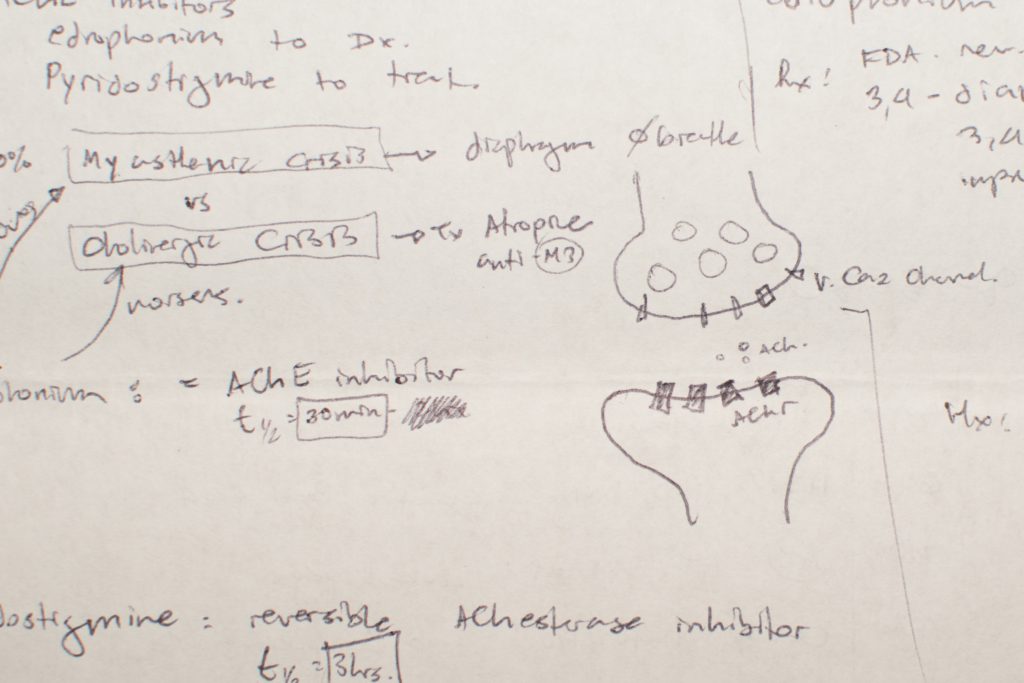 inhibitors
edrophonium to Dx.
Pyridostigmine to treat.
0%
Myasthenic Crisis → diaphragm Ø breathe
vs
Cholinergic Crisis → Tx Atropine
anti-M3
worsens.
phonium : = AChE inhibitor
t 1/2 = 30min
dostigmine : reversible AChesterase inhibitor
t 1/2 = 3hrs.
v. Ca2 Channel.
ACh.
AChr
Rx:
FDA. new.
3,4-diam
3,4
Hx: